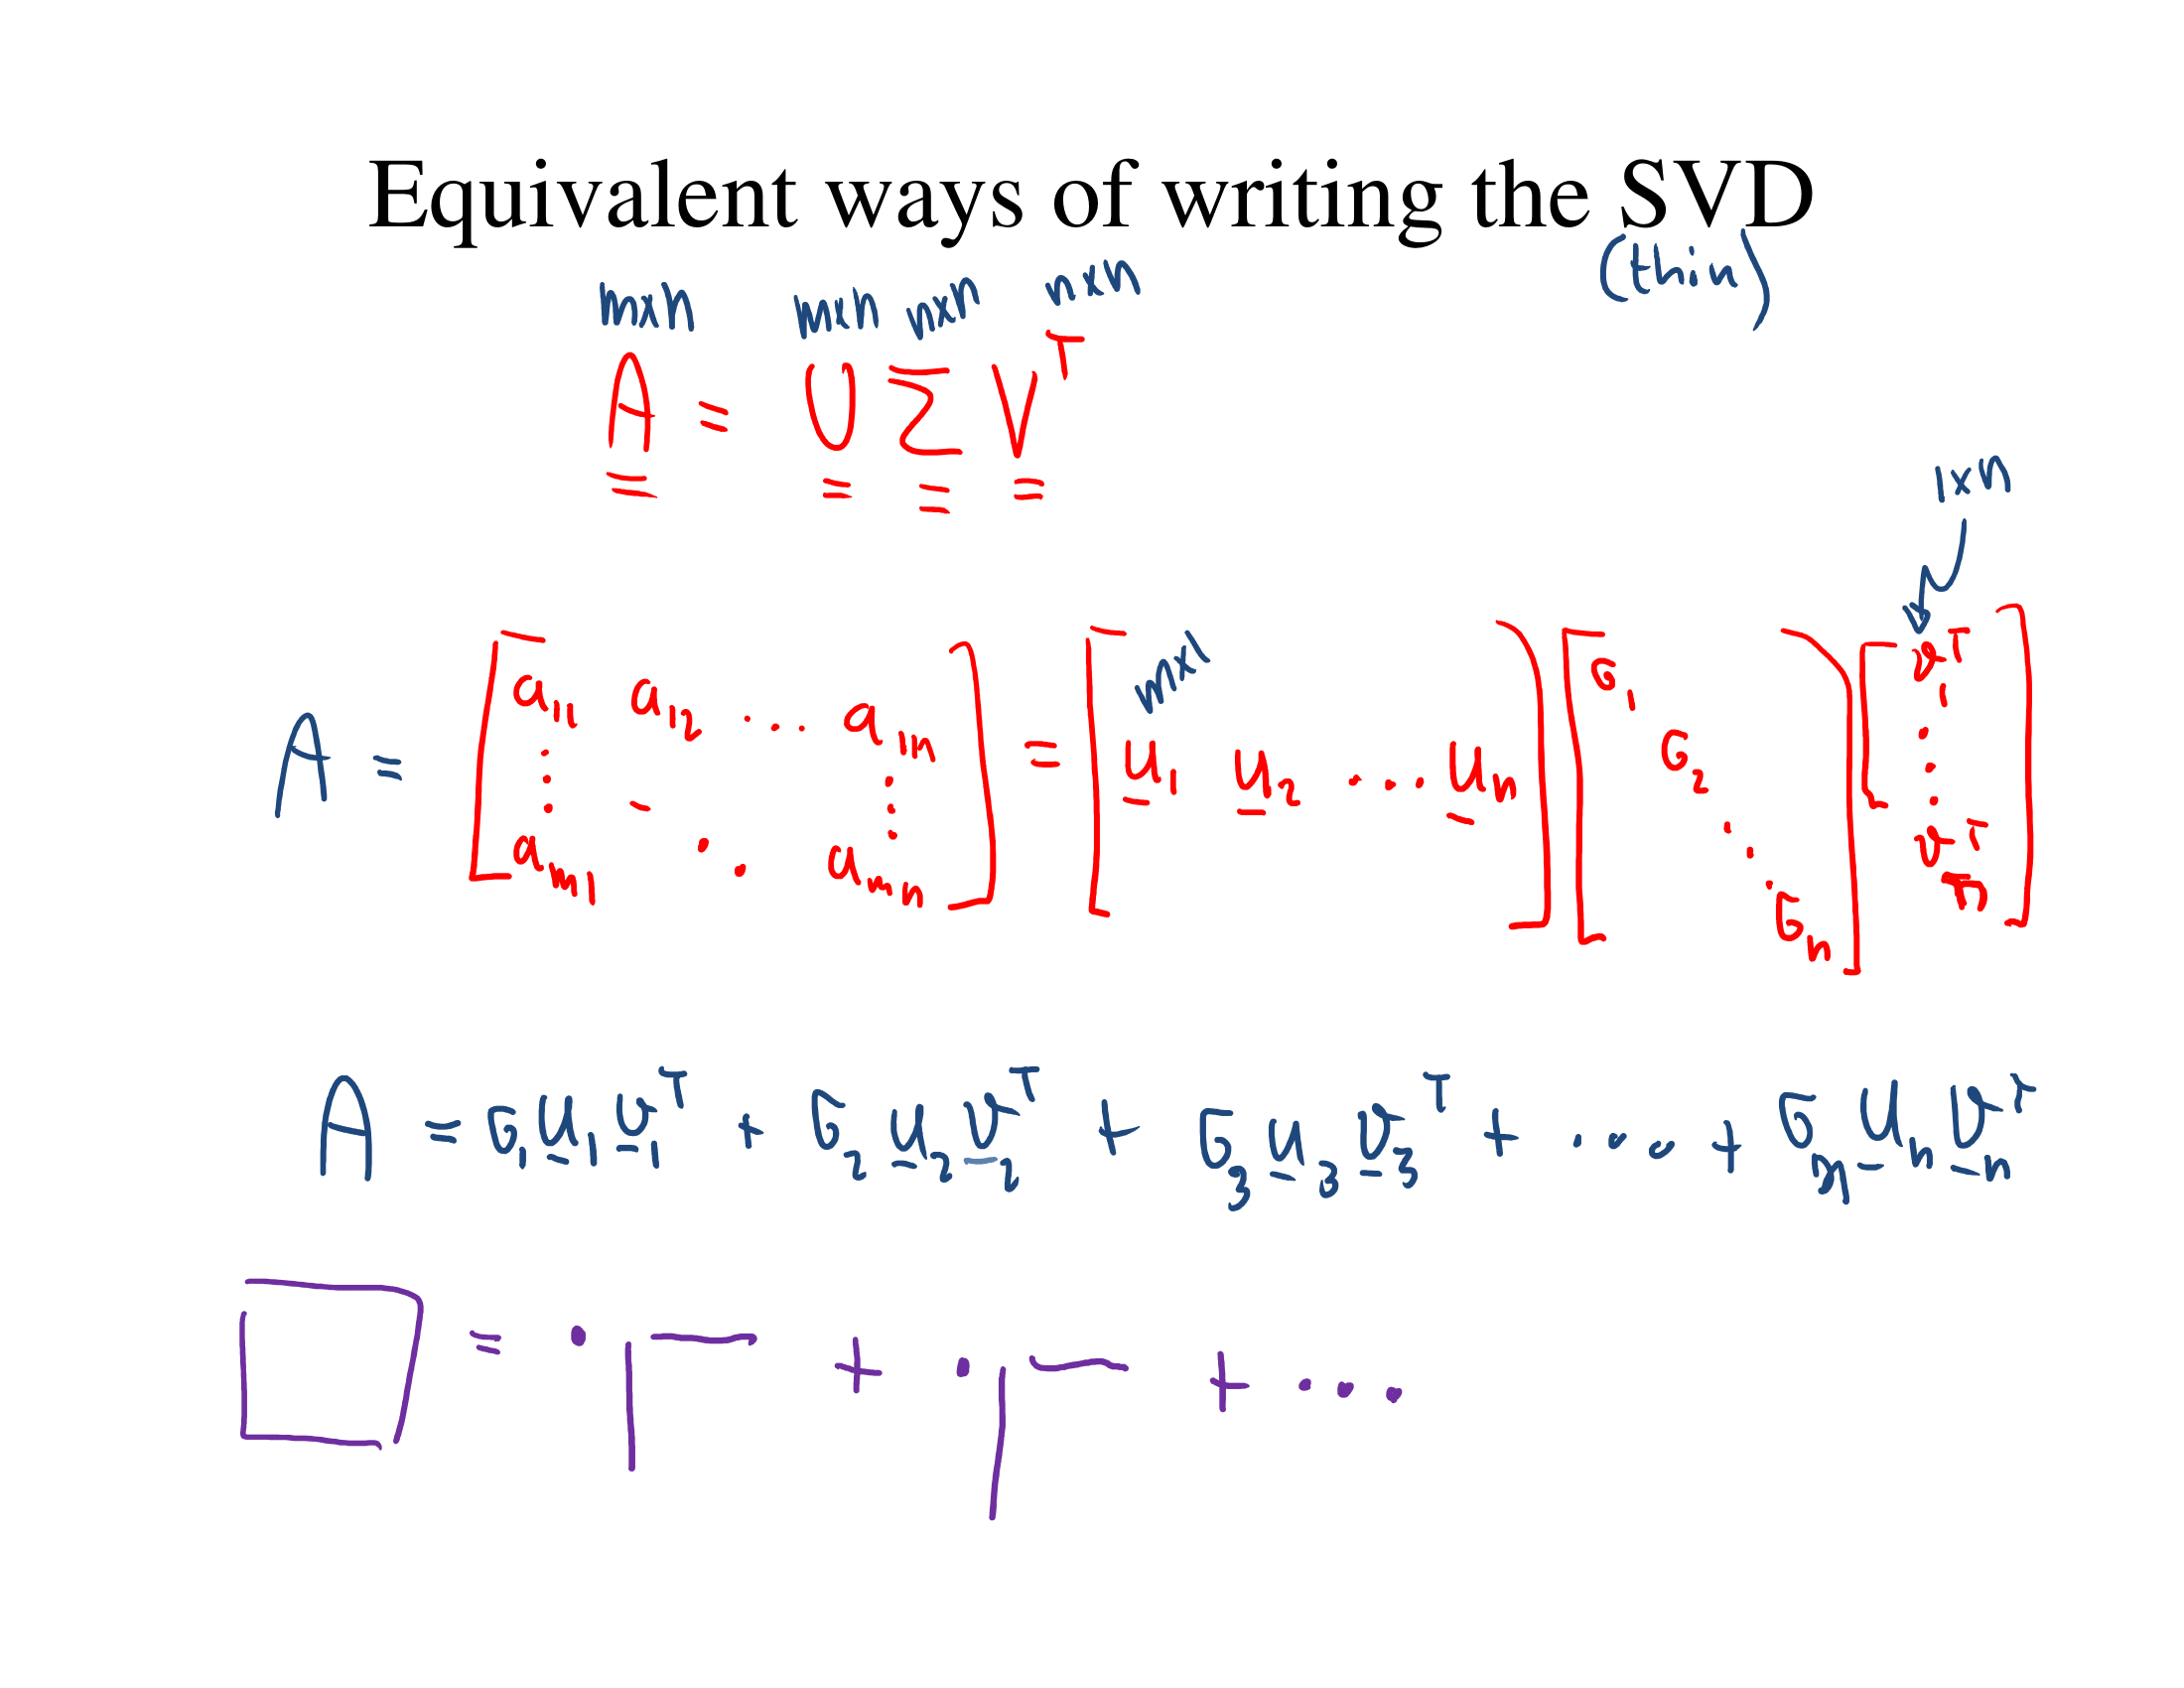 Equivalent ways of writing the SVD
(thin)
m×n m×n n×n n×n
A = U Σ Vᵀ
1×n
m×1
A = [a₁₁ a₁₂ ... a₁ₙ ⋮ ⋱ ⋮ aₘ₁ aₘₙ] = [u₁ u₂ ... uₙ] [σ₁ σ₂ ⋱ σₙ] [v₁ᵀ ⋮ vₙᵀ]
A = σ₁u₁v₁ᵀ + σ₂u₂v₂ᵀ + σ₃u₃v₃ᵀ + ... + σₙuₙvₙᵀ
= · + · + ...